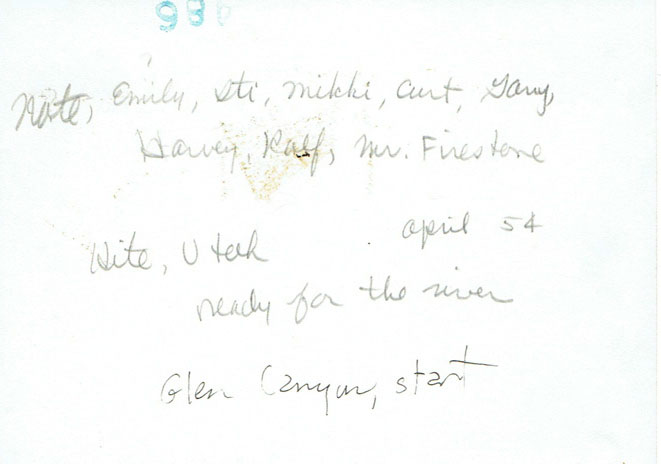 98
Kate, Emily, Sti, Mikki, Curt, Gary,
Harvey, Ralf, Mr. Firestone
Hite, Utah april 54
ready for the river
Glen Canyon, start